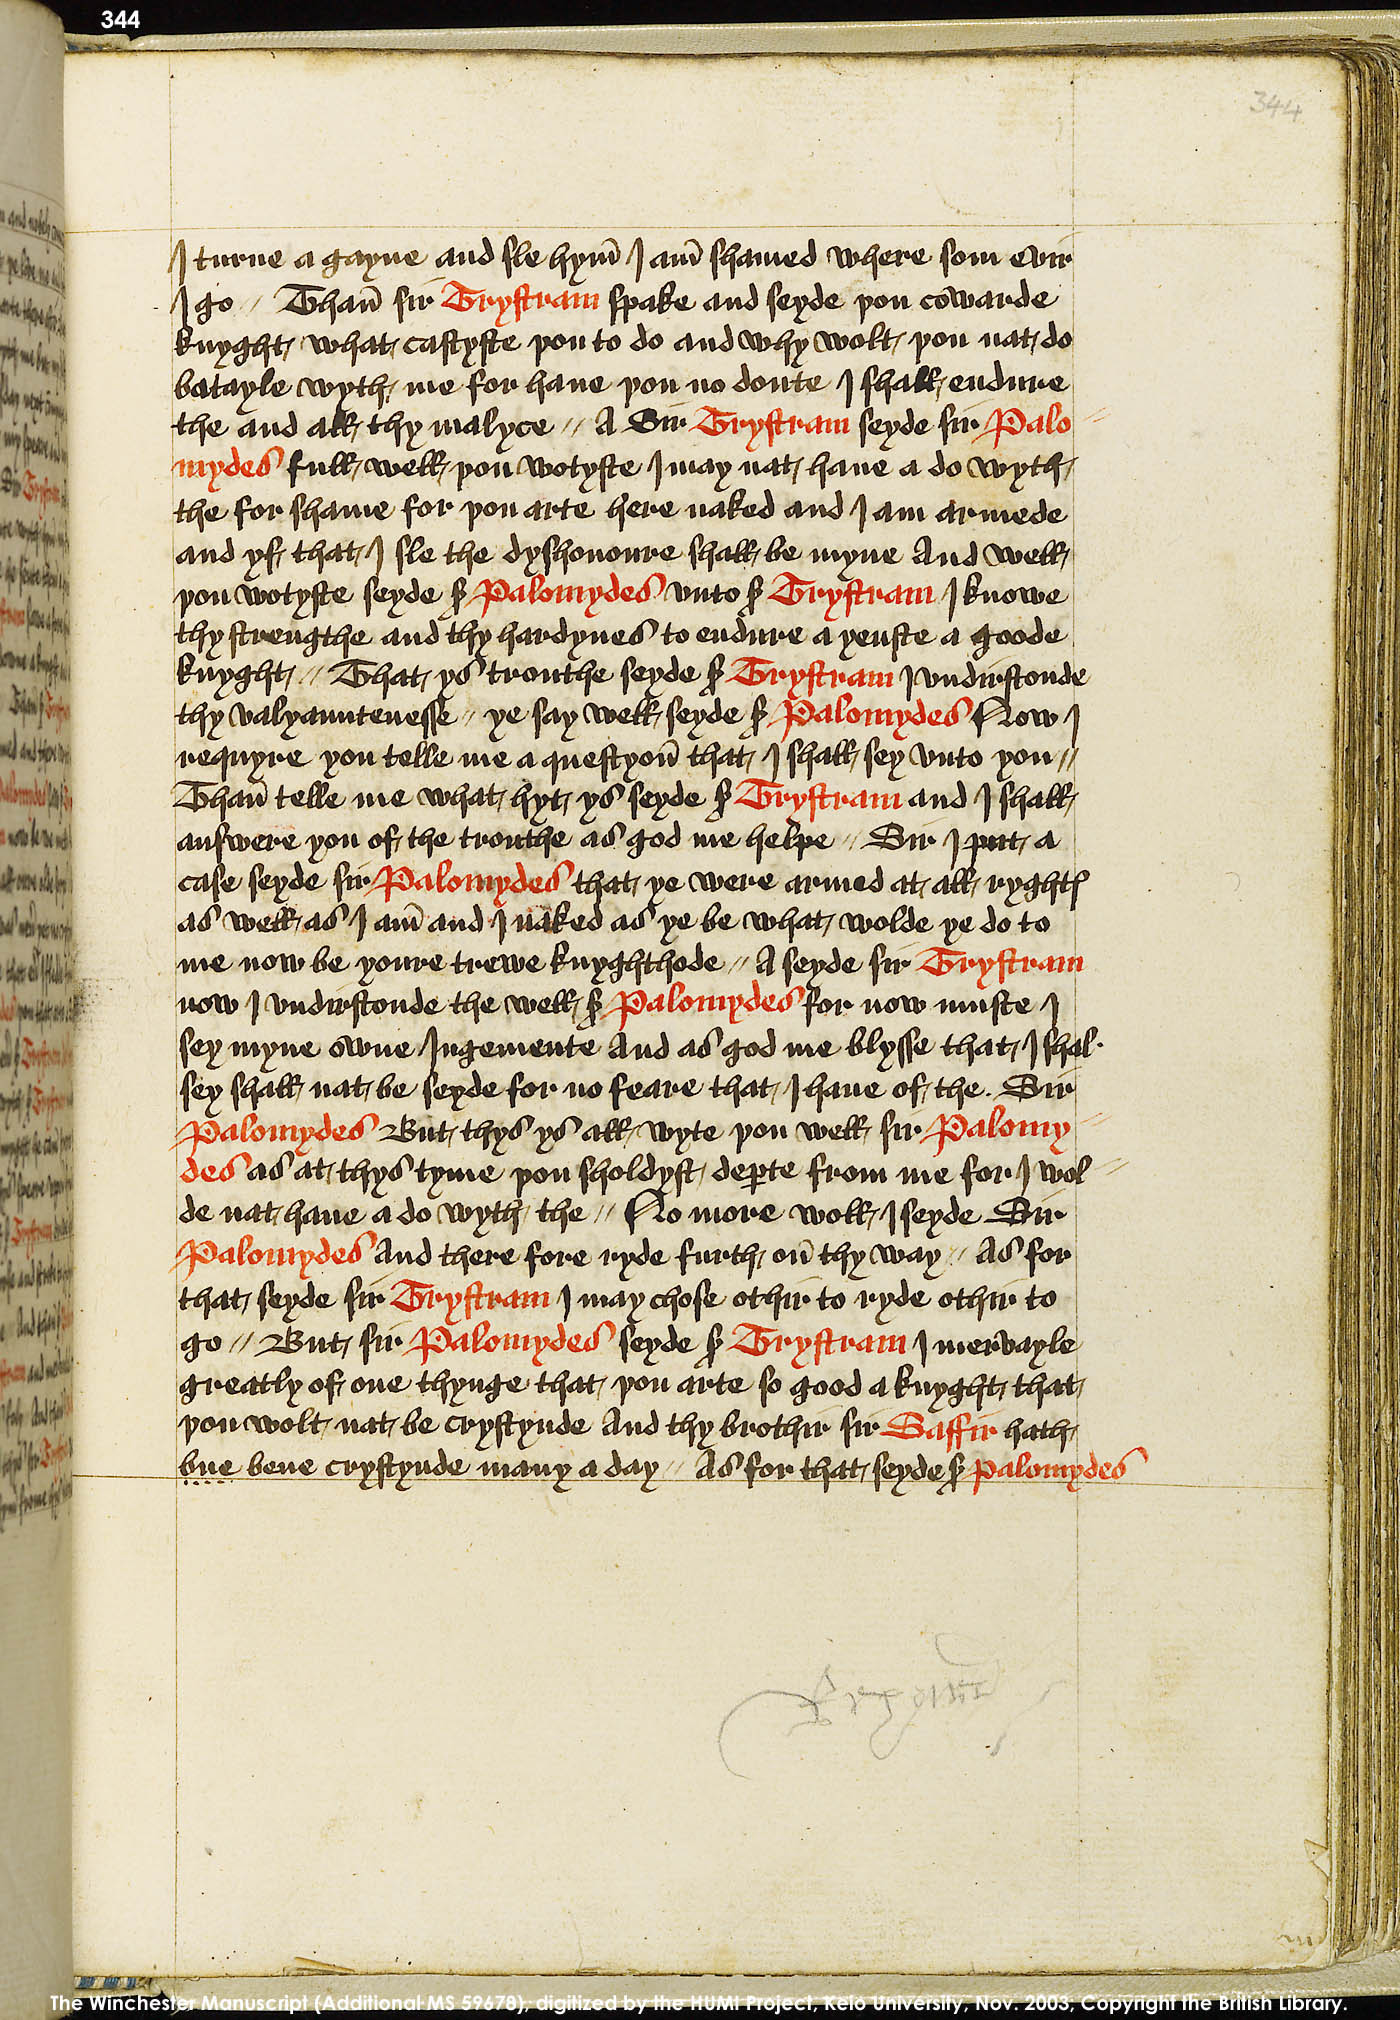 344
344
I turne a gayne and sle hym̄ I am̄ shamed where som evir
I go // Than̄ sir Trystram spake and seyde þou cowarde
knyght what castyste þou to do and why wolt þou nat do
batayle wyth me for haue þou no doute I shall endure
the and all thy malyce // A Sir Trystram seyde sir Palo
mydes full well þou wotyste I may nat haue a do wyth
the for shame for þou arte here naked and I am armede
and yf that I sle the dyshonoure shall be myne And well
þou wotyste seyde ẜ Palomydes vnto ẜ Trystram I knowe
thy strengthe and thy hardynes to endure a yenste a goode
knyght // That ys trouthe seyde ẜ Trystram I vndirstonde
thy valyauntenesse // ye say well seyde ẜ Palomydes Now I
requyre you telle me a questyon̄ that I shall sey vnto you //
Than̄ telle me what hyt ys seyde ẜ Trystram and I shall
answere you of the trouthe as god me helpe // Sir I put a
case seyde sir Palomydes that ye were armed at all ryghtꝭ
as well as I am̄ and I naked as ye be what wolde ye do to
me now be youre trewe knyghthode // A seyde sir Trystram
now I vndirstonde the well ẜ Palomydes for now muste I
sey myne owne Iugemente And as god me blysse that I shal
sey shall nat be seyde for no feare that I haue of the. Sir
Palomydes But thys ys all wyte þou well sir Palomy
des as at thys tyme þou sholdyst deꝑte from me for I wol
de nat haue a do wyth the // No more woll I seyde Sir
Palomydes And there fore ryde furth on̄ thy way // As for
that seyde sir Trystram I may chose othir to ryde othir to
go // But sir Palomydes seyde ẜ Trystram I mervayle
greatly of one thynge that þou arte so good a knyght that
þou wolt nat be crystynde And thy brothir sir Saffir hath
bue bene crystynde many a day // As for that seyde ẜ Palomydes
The Winchester Manuscript (Additional MS 59678), digitized by the HUMI Project, Keio University, Nov. 2003, Copyright the British Library.